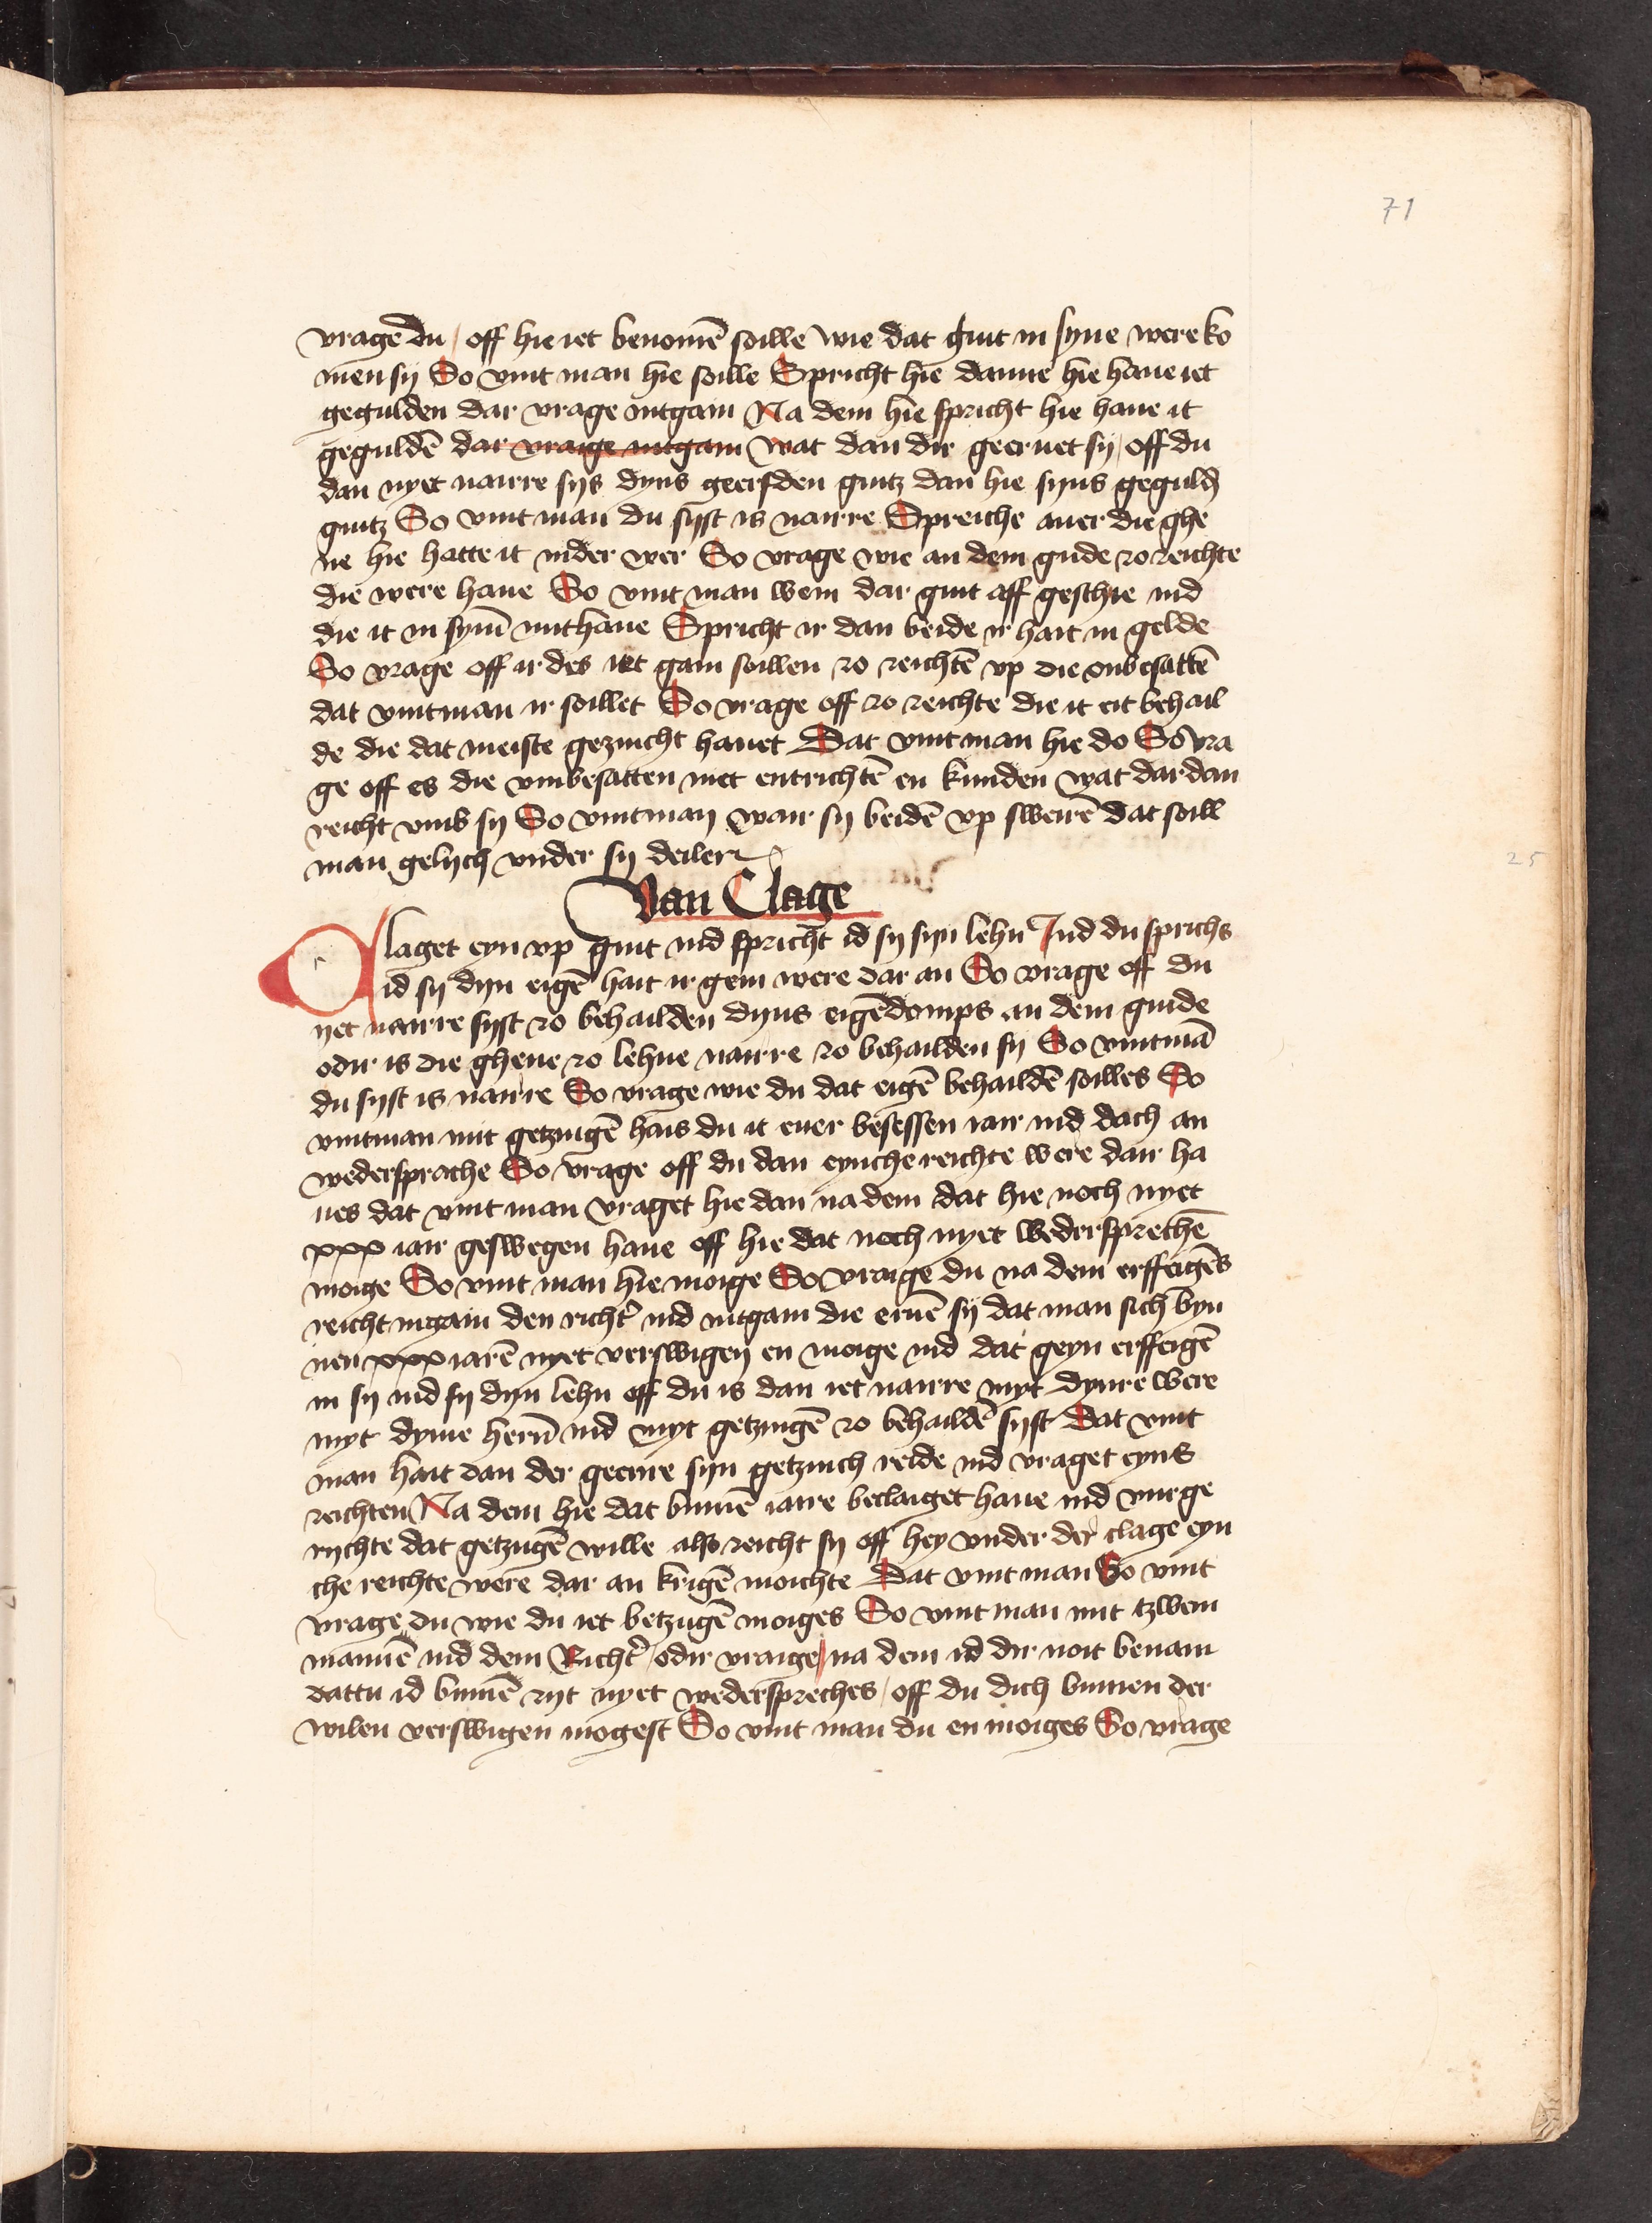 71
vragē du / off hie iet benomē soille wie dat guit in syne were ko
men sy So vint man hie soille Spricht hie danne hie haue iet
gegulden dar vrage intgain Na dem hie spricht hie haue it
geguldē dar vraige intgain wat dan dir geeruet sy / off du
dan nyet nairre sys dyns geerfden guitz dan hie syns geguldē
guitz So vint man du syst is nairre Spreiche auer die ghe
ne hie hatte it inder wer So vrage wie an dem gude zo reichte
die were haue So vint man wem dar guit aff geschie ind
die it in synē nut haue Spricht ir dan beide ir hait in gelde
So vrage off ir des iet gain soillen zo reichtē vp die vnbesattē
dat vintman ir soillet So vrage off zo reichte die it eit behail
de die dat meiste gezuicht hauet Dat vint man hie do So vra
ge off es die vmbesatten niet entrichtē en kunden wat dar dan
reicht vmb sy So vintman wair sy beidē vp sweirē dat soill
man gelych vnder sy deilen
25
Van Clage
Claget eyn vp guit ind spricht id sy syn lehn Ind du sprichs
id sy dyn eigē hait ir gein were dar an So vrage off du
yet nairre syst zo behailden dyns eigēdomps an dem guide
odir is die ghene zo lehne nairre zo behailden sy So vintmā
du syst is nairre So vrage wie du dat eigē behaildē soilles So
vintman mit getzuigē hais du it euer besessen iair ind dach an
wedersprache So vrage off du dan eynche reichte were dair ha
ues dat vint man vraget hie dan na dem dat hie noch nyet
xxx iair geswegen haue off hie dat noch nyet wedersprechē
moige So vint man hie moige So vraige du na dem erffeigēs
reicht ingain den richt' ind intgain die eruē sy dat man sich byn
nen xxx iarē nyet verswigen en moige ind dat geyn erffeigē
in sy ind sy dyn lehn off du is dan iet nairre myt dynre were
myt dyme herrē ind myt getzuigē zo behaildē syst Dat vint
man hait dan der geenre syn getzuich reide ind vraget eyns
reichten Na dem hie dat binnē iaire beclaiget haue ind vurge
richte dat getzugē wille also reicht sy off hey vnder der clage eyn
che reichte were dar an krigē moichte Dat vint man So vint
vrage du wie du iet betzugē moiges So vint man mit tzwein
mannē ind dem Richt' / odir vraige / na dem id dir noit benam
dattu id binnē zyt nyet wedersprechs / off du dich binnen der
wilen verswigen mogest So vint man du en moiges So vrage